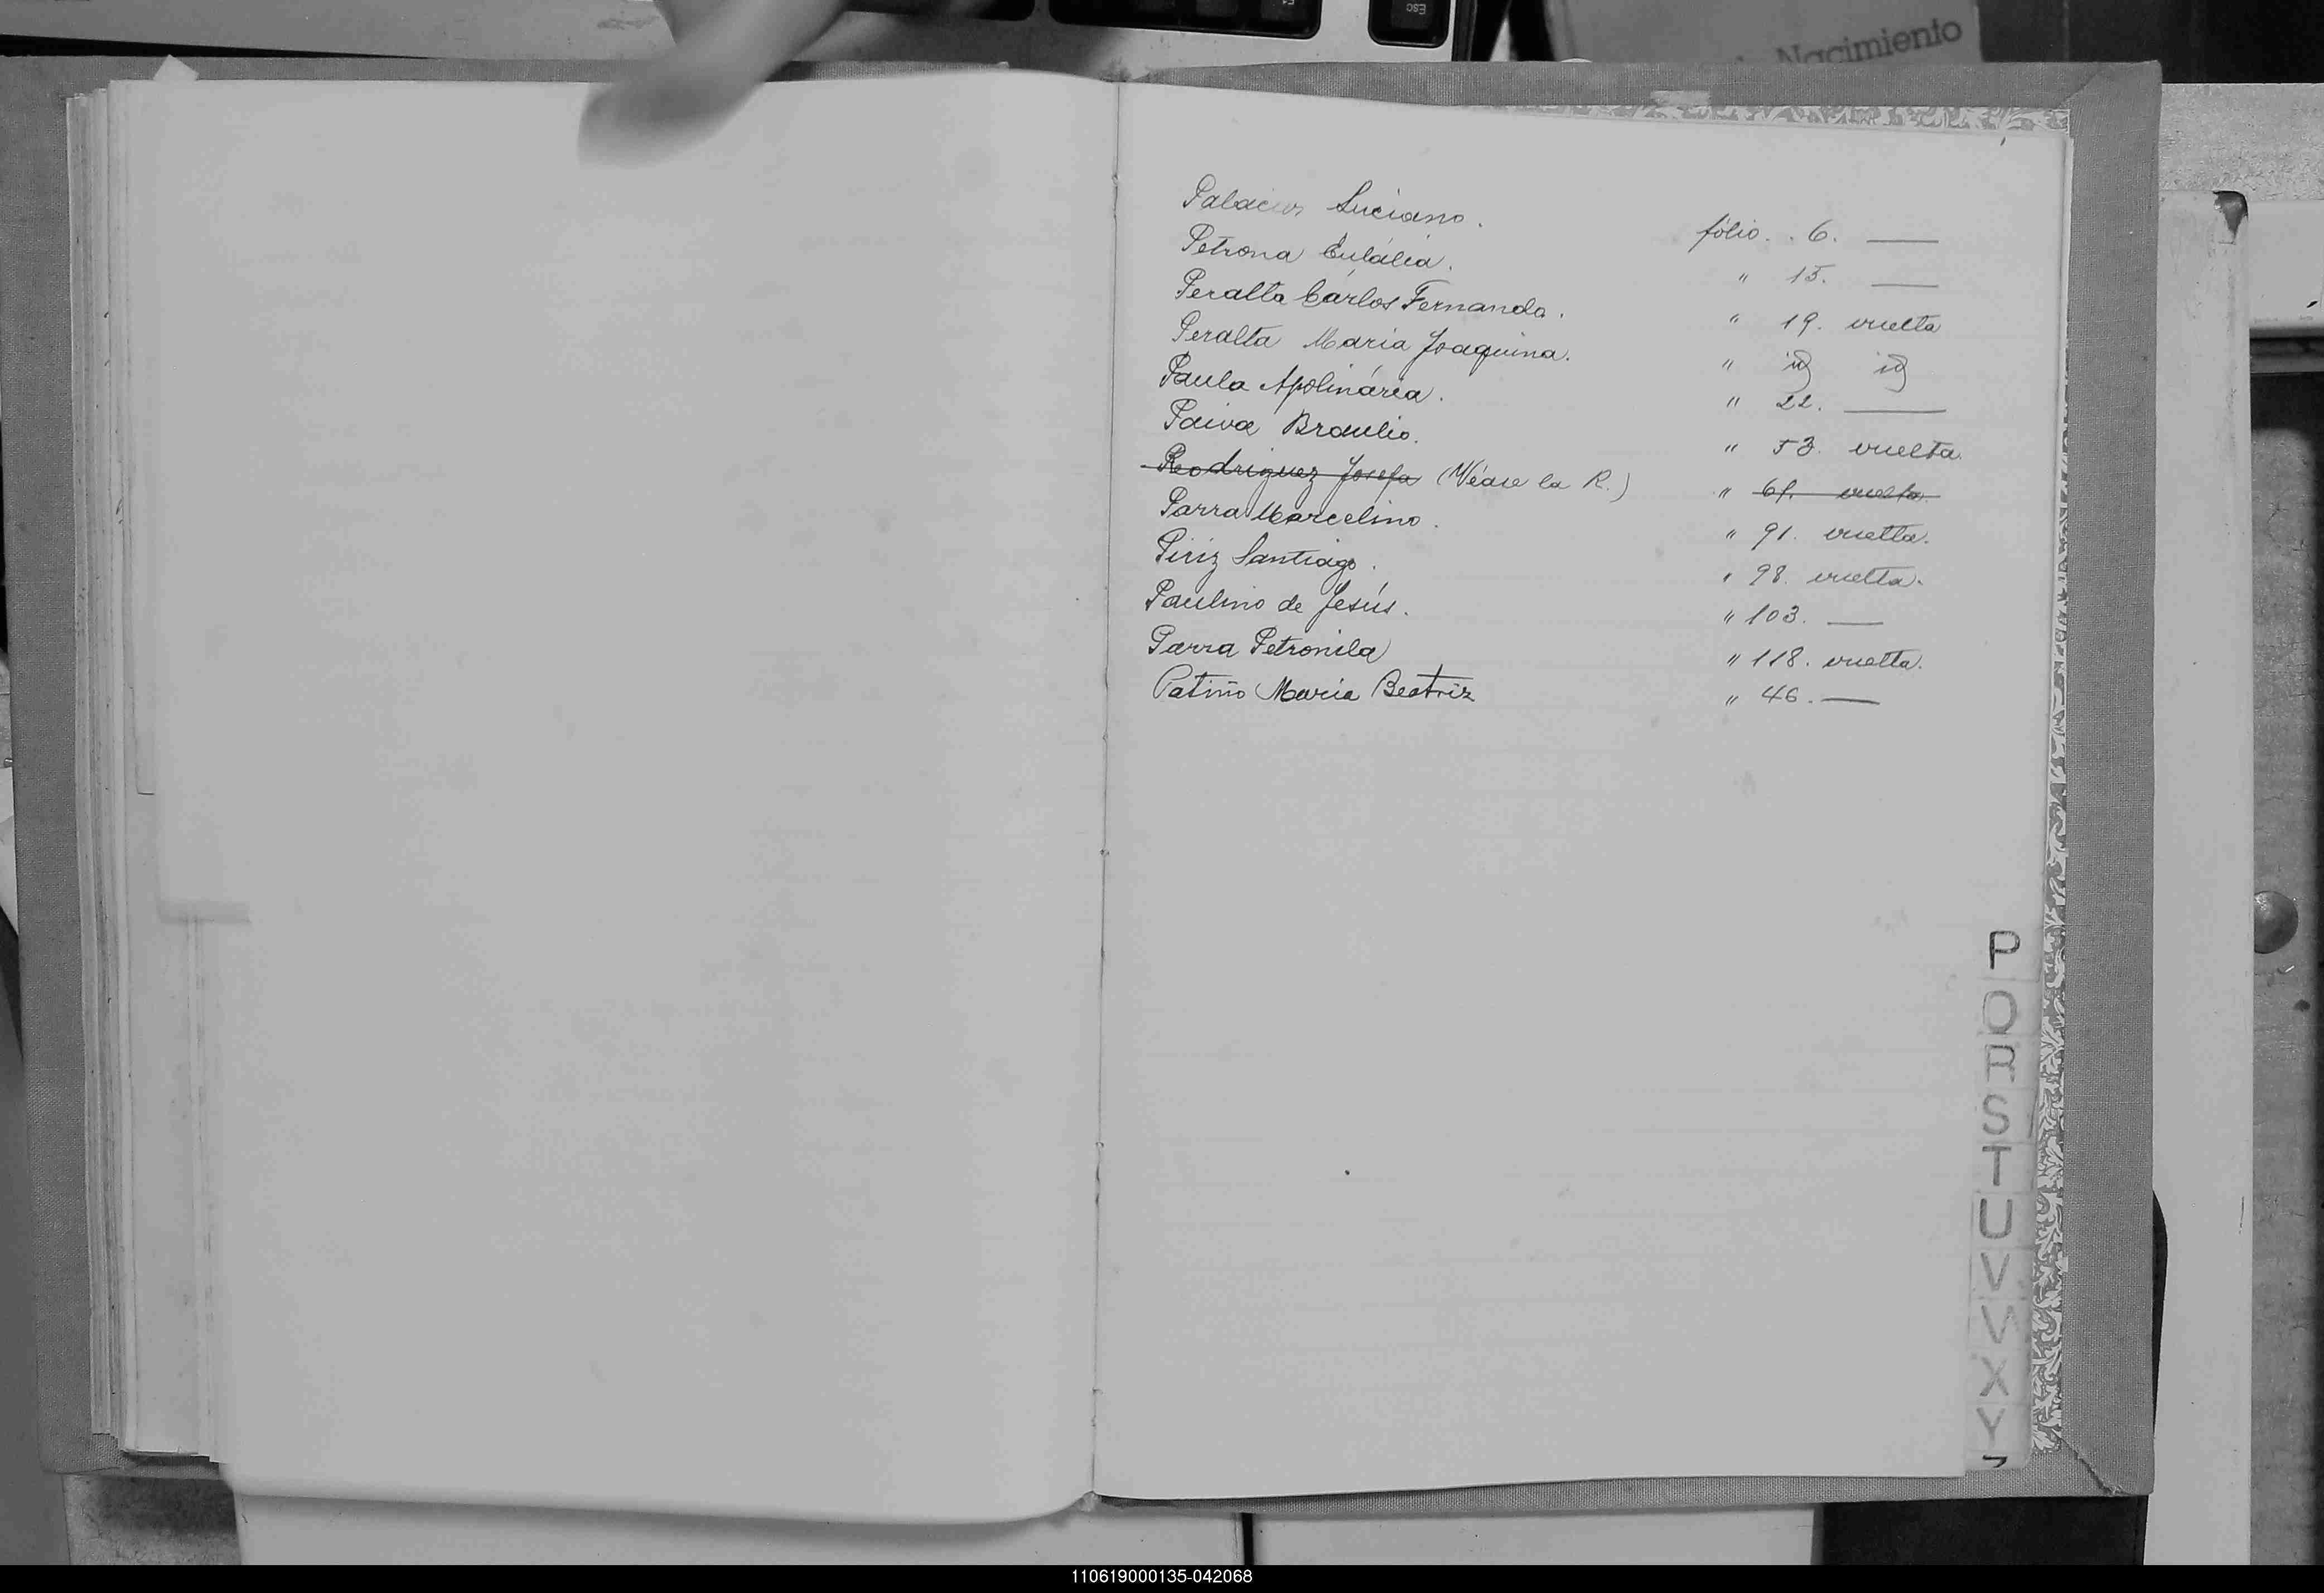 Esc
Nacimiento
Palacios Luciano. fólio. . 6. —
Petrona Eulália. " 15. —
Peralta Cárlos Fernando. " 19. vuelta
Peralta Maria Joaquina. " id id
Paula Apolinária. " 22. —
Paiva Braulio. " 53. vuelta.
Rodriguez Josefa (Véase la R.) " 61. vuelta.
Parra Marcelino. " 91. vuelta.
Piriz Santiago. " 98. vuelta.
Paulino de Jesús. " 103. —
Parra Petronila " 118. vuelta.
Patiño Maria Beatriz " 46. —
P
Q
R
S
T
U
V
W
X
Y
Z
110619000135-042068